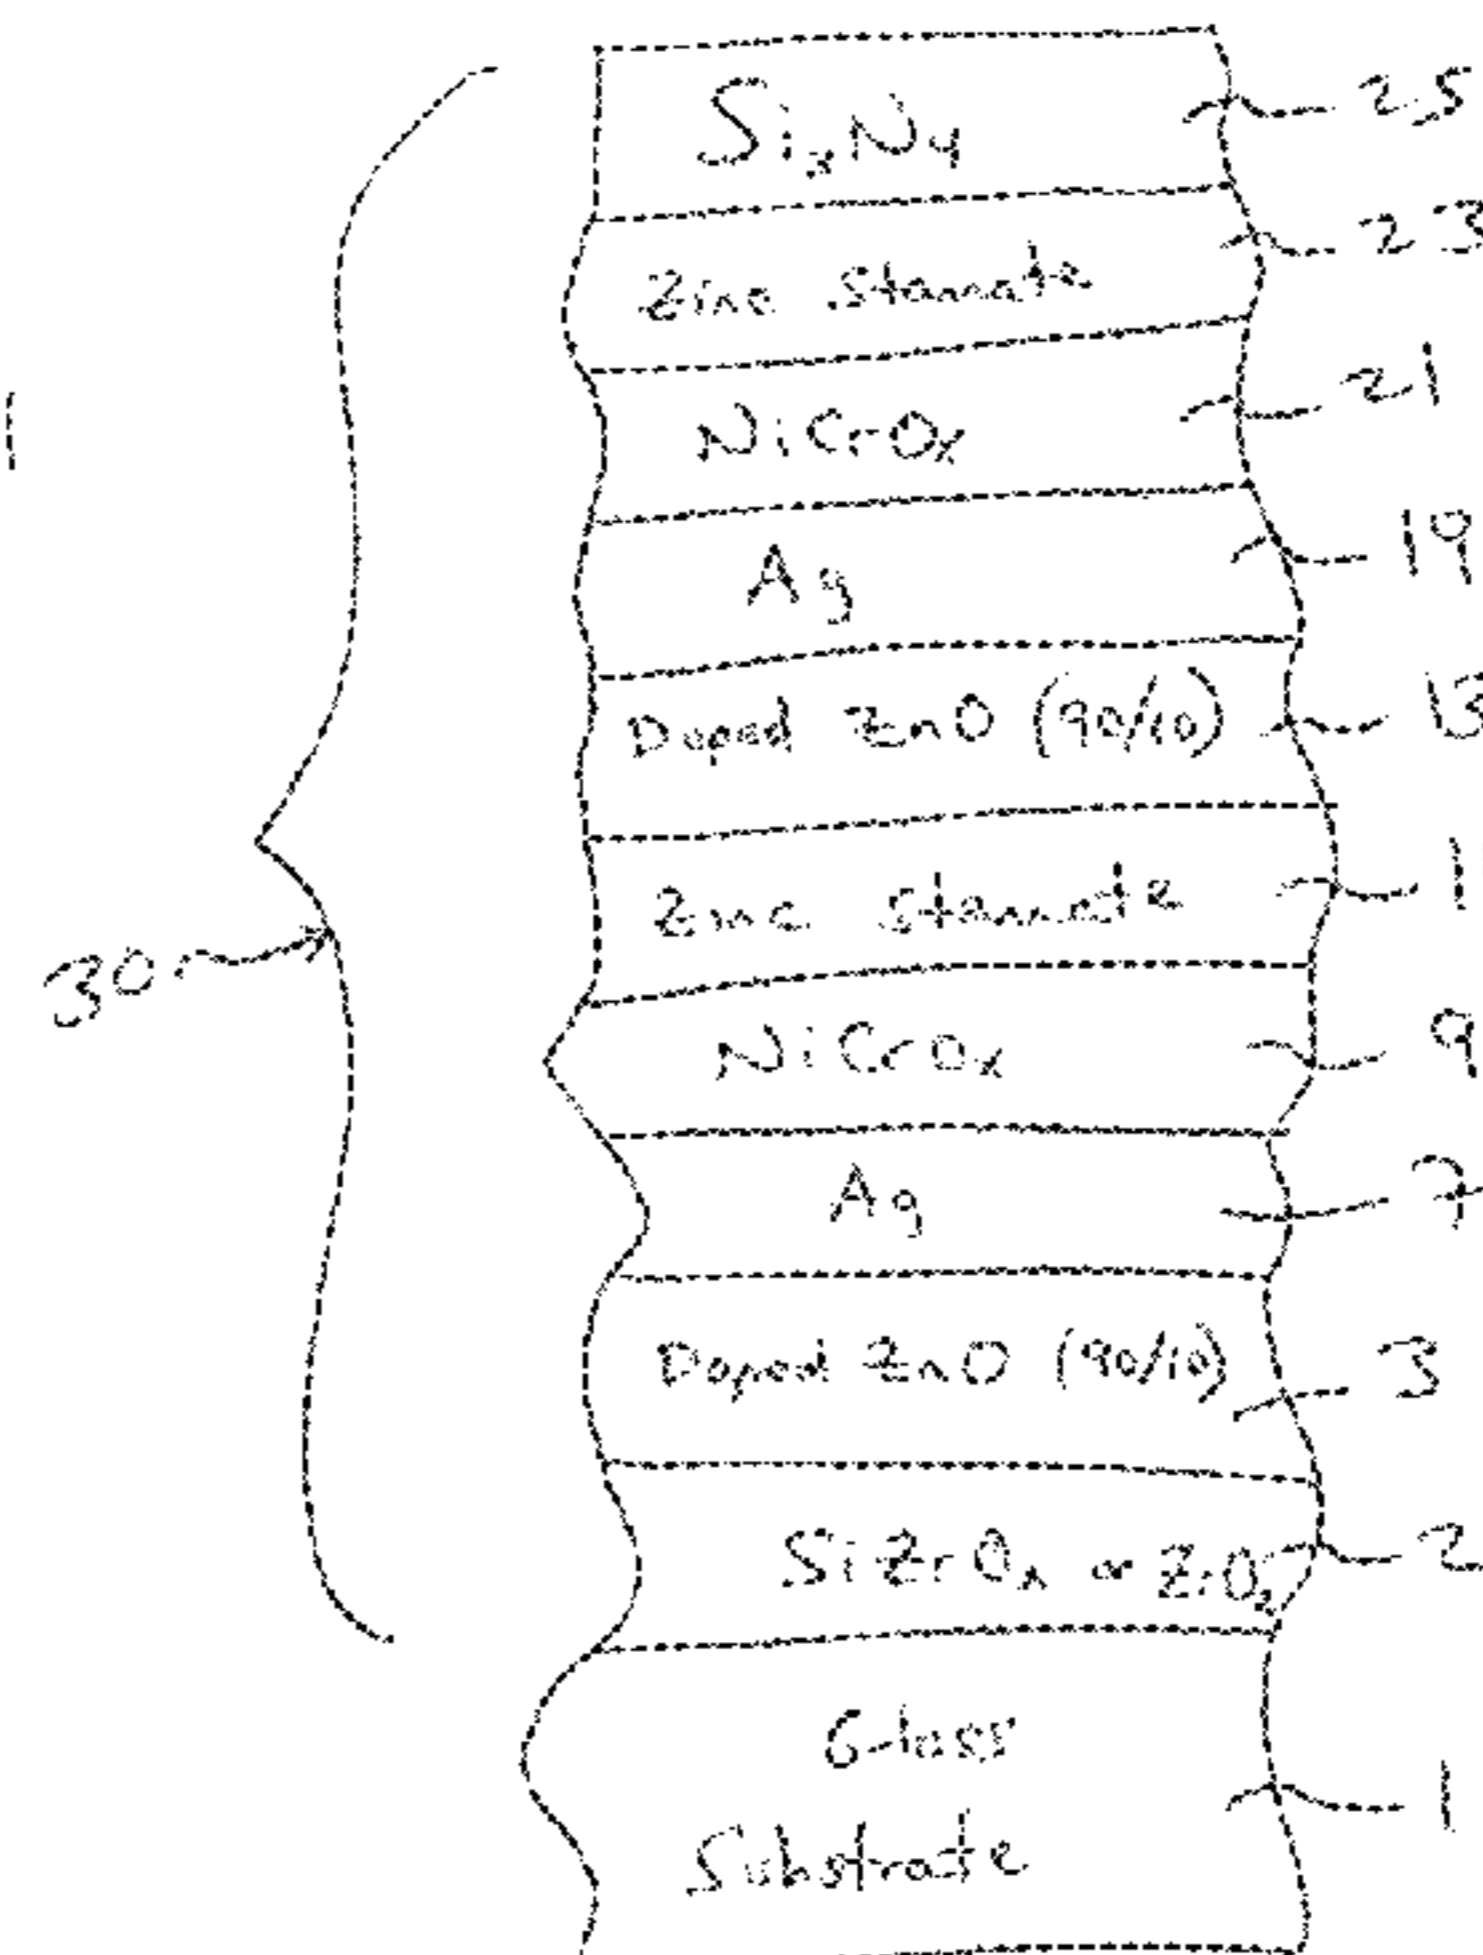 Si₃N₄ 25
Zinc Stannate 23
NiCrOx 21
Ag 19
Doped ZnO (90/10) 13
Zinc Stannate
NiCrOx 9
Ag 7
Doped ZnO (90/10) 3
SiZrOx or ZrO₂ 2
Glass
Substrate 1
30